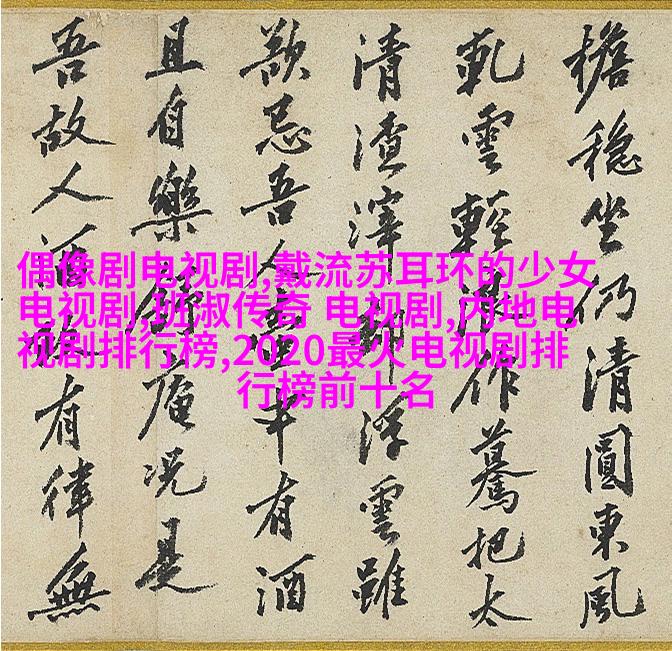 檐穩坐仍清圓東風
軋雲輕作驀把太
清渣滓浮雲雖
忌吾人有酒
且自樂庵况是
吾故人有律無
偶像剧电视剧,戴流苏耳环的少女
电视剧,班淑传奇 电视剧,内地电
视剧排行榜,2020最火电视剧排
行榜前十名